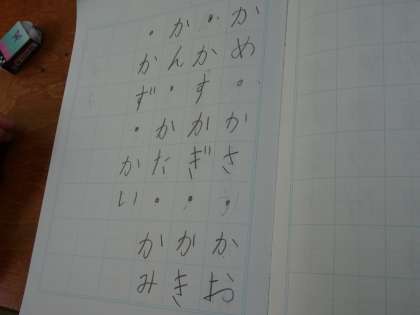 かめ・かさ・かお
・かすかぎ・かき
かん・かた・かみ
・かず・かい